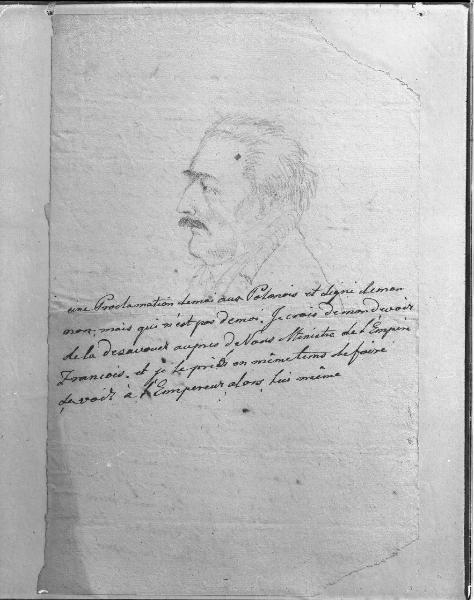 une Proclamation semée aux Polonois et signé de mon
nom, mais qui n'est pas de moi. Je crois de mon devoir
de la desavouer aupres de Vous Ministre de l'Empire
Francois, et je le priés en même tems de faire
savoir à l'Empereur alons lui même